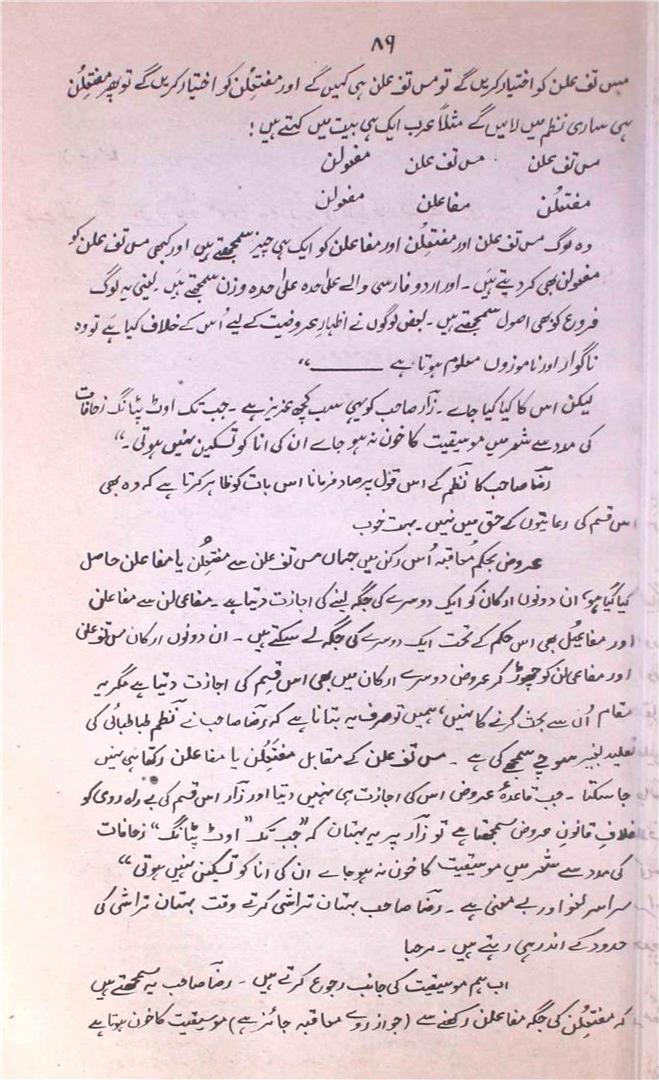 ۸۹
مس تف علن کو اختیار کریں گے تو مس تف علن ہی کہیں گے اور مفتعِلُن کو اختیار کریں گے تو پھر مفتعِلُن
ہی ساری نظم میں لائیں گے مثلاً عرب ایک ہی بیت میں کہتے ہیں؛
مس تف علن مس تف علن مفعولن
مفتعِلُن مفاعلن مفعولن
وہ لوگ مس تف علن اور مفتعِلُن اور مفاعلن کو ایک ہی چیز سمجھتے ہیں اور کبھی مس تف علن کو
مفعولن بھی کر دیتے ہیں۔ اور اردو فارسی والے علٰحدہ علٰحدہ وزن سمجھتے ہیں۔ یعنی یہ لوگ
فروع کو بھی اصول سمجھتے ہیں۔ بعض لوگوں نے اظہارِ عروضیت کے لیے اُس کے خلاف کیا ہے تو وہ
ناگوار اور ناموزوں معلوم ہوتا ہے ــــــــ،،
لیکن اس کا کیا کیا جاے۔ زآر صاحب کو یہی سب کچھ عزیز ہے۔ جب تک اوٹ پٹانگ زحافات
کی مدد سے شعر میں موسیقیت کا خون نہ ہو جاے ان کی انا کو تسکین نہیں ہوتی۔“
رضؔا صاحب کا نظؔم کے اس قول پر صاد فرمانا اس بات کو ظاہر کرتا ہے کہ وہ بھی
اس قسم کی رعایتوں کے حق میں نہیں۔ بہت خوب
عروض بحکمِ مُعاقبہ اُس رکن میں جہاں مس تف علن سے مفتعِلُن یا مفاعلن حاصل
کیا گیا ہو، ان دونوں ارکان کو ایک دوسرے کی جگہ لینے کی اجازت دیتا ہے۔ مفاعی لن سے مفاعلن
اور مفاعیلُ بھی اس حکم کے تحت ایک دوسرے کی جگہ لے سکتے ہیں۔ ان دونوں ارکان مس تف علن
اور مفاعی لن کو چھوڑ کر عروض دوسرے ارکان میں بھی اس قسم کی اجازت دیتا ہے مگر یہ
مقام اُن سے بحث کرنے کا نہیں، ہمیں تو صرف یہ بتانا ہے کہ رضؔا صاحب نے نظؔم طباطبائی کی
تقلید بغیر سوچے سمجھے کی ہے۔ مس تف علن کے مقابل مفتعِلُن یا مفاعلن رکھا ہی نہیں
جا سکتا۔ جب قاعدۂ عروض اس کی اجازت ہی نہیں دیتا اور زآر اس قسم کی بے راہ روی کو
خلافِ قانونِ عروض سمجھتا ہے تو زآر پر یہ بہتان کہ ”جب تک “اوٹ پٹانگ“ زحافات
کی مدد سے شعر میں موسیقیت کا خون نہ ہو جاے ان کی انا کو تسکین نہیں ہوتی“
سراسر لغو اور بے معنی ہے۔ رضؔا صاحب بہتان تراشی کرتے وقت بہتان تراشی کی
حدود کے اندر ہی رہتے ہیں۔ مرحبا
اب ہم موسیقیت کی جانب رجوع کرتے ہیں۔ رضؔا صاحب یہ سمجھتے ہیں
کہ مفتعِلُن کی جگہ مفاعلن رکھنے سے (جواز روے معاقبہ جائز ہے) موسیقیت کا خون ہوتا ہے